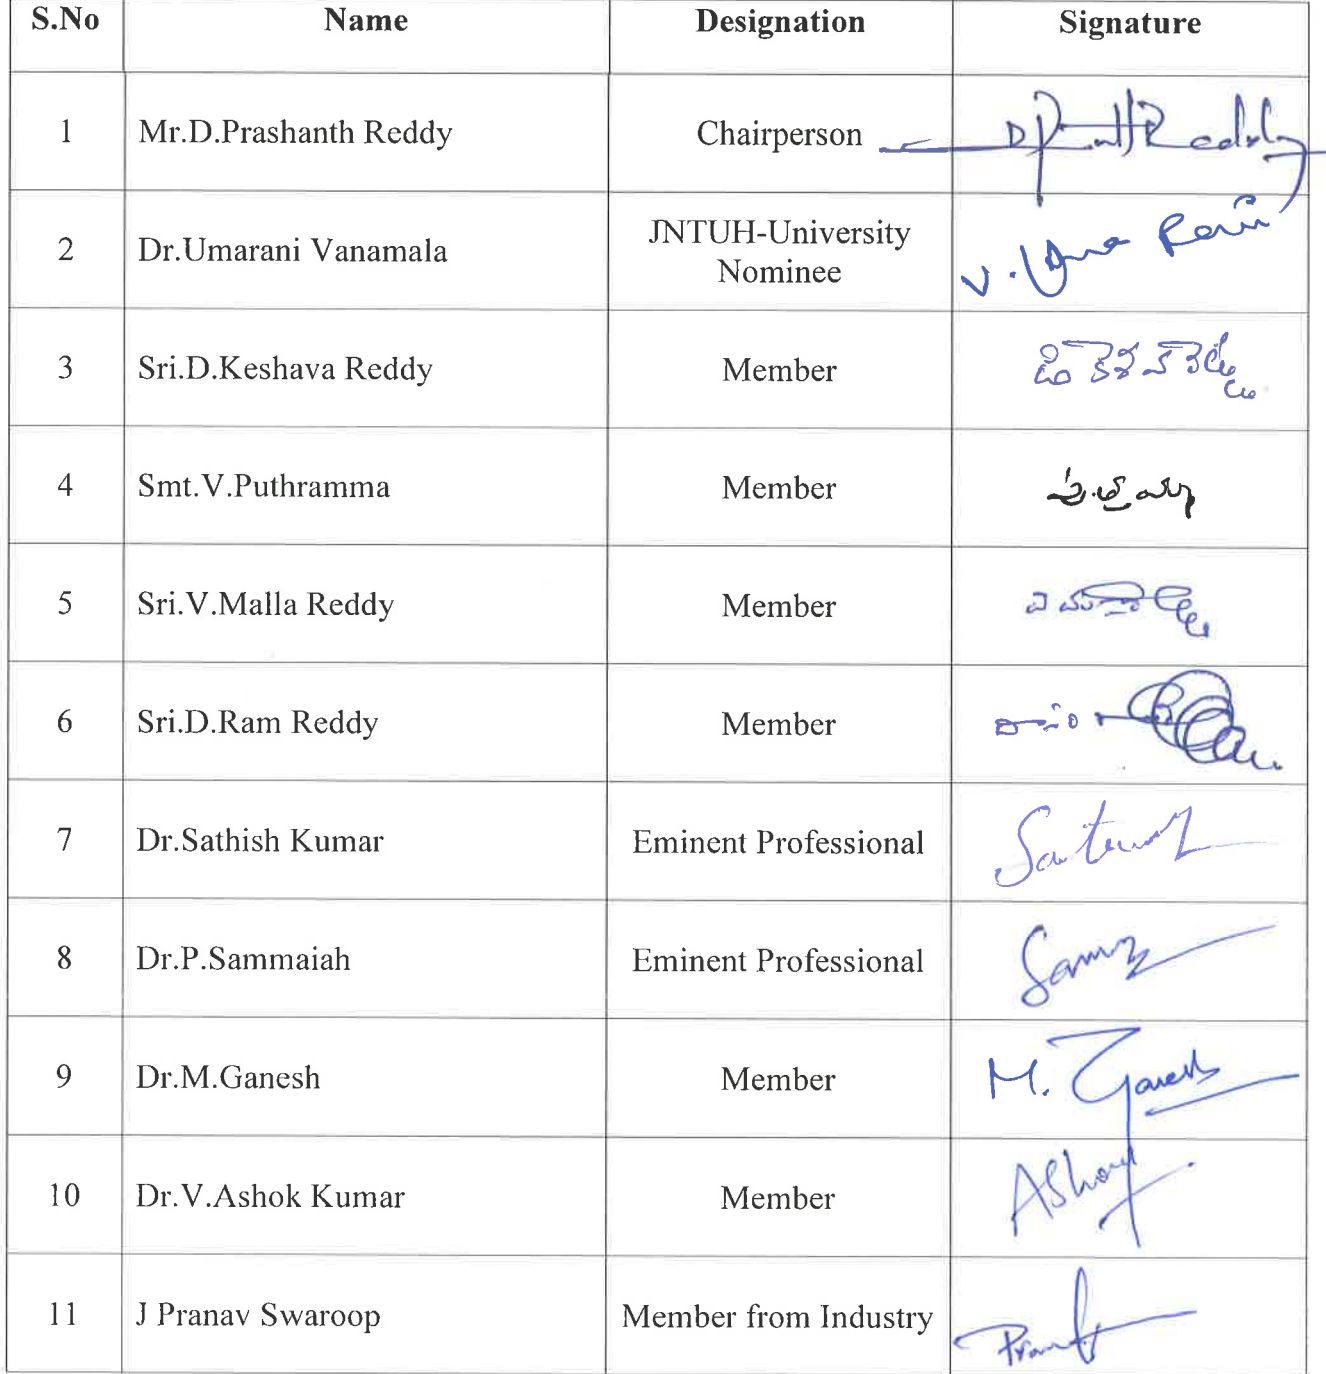 S.No Name Designation Signature
1 Mr.D.Prashanth Reddy Chairperson
2 Dr.Umarani Vanamala JNTUH-University
Nominee V. Uma Rani
3 Sri.D.Keshava Reddy Member
4 Smt.V.Puthramma Member
5 Sri.V.Malla Reddy Member
6 Sri.D.Ram Reddy Member
7 Dr.Sathish Kumar Eminent Professional
8 Dr.P.Sammaiah Eminent Professional
9 Dr.M.Ganesh Member M. Ganesh
10 Dr.V.Ashok Kumar Member Ashok
11 J Pranav Swaroop Member from Industry